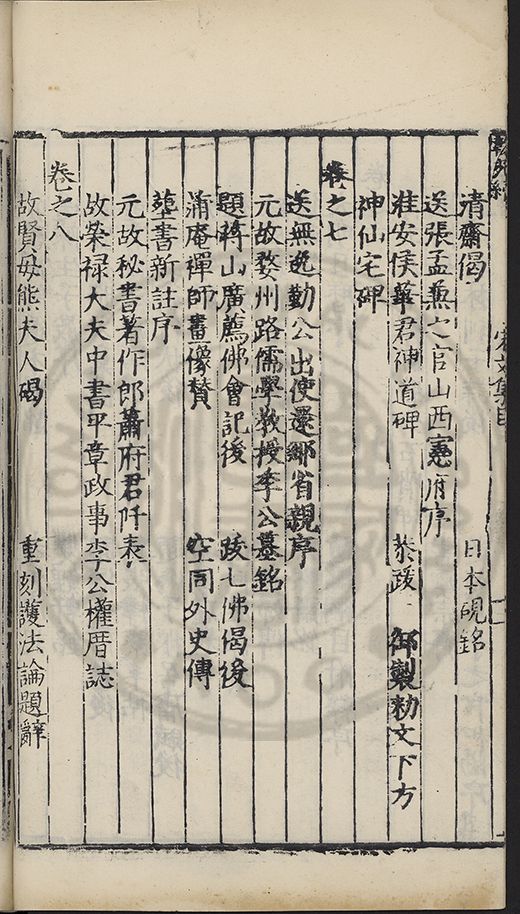 清齋偈　日本硯銘
送張孟兼之官山西憲府序
淮安侯華君神道碑　恭跋　御製勑文下方
神仙宅碑
卷之七
送無逸勤公出使還鄉省親序
元故婺州路儒學教授李公墓銘
題蔣山廣薦佛會記後　跋七佛偈後
蒲庵禪師畫像賛　空同外史傳
葬書新註序
元故秘書著作郎蕭府君阡表
故榮禄大夫中書平章政事李公權厝誌
卷之八
故賢母熊夫人碣　重刻護法論題辭